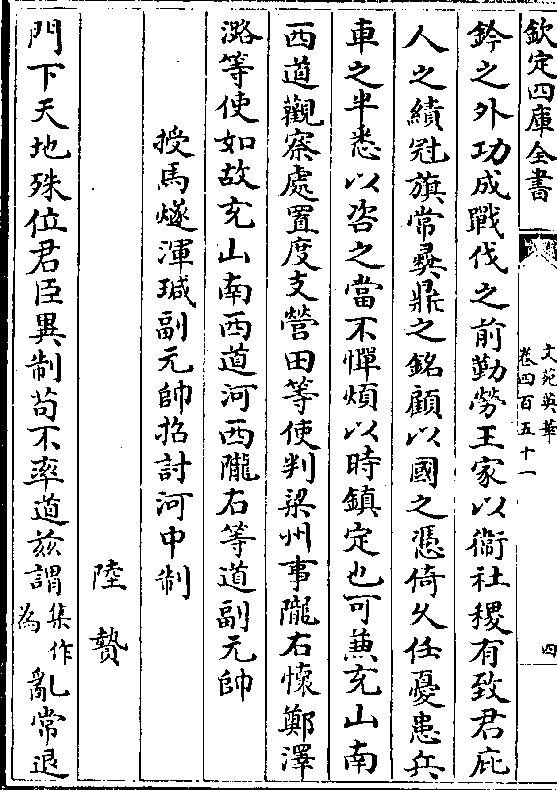 欽定四庫全書
文苑英華
卷四百五十一
四
鈐之外功成戰伐之前勤勞王家以衞社稷有致君庇
人之績冠旗常彛鼎之銘顧以國之憑倚久任憂患兵
車之半悉以咨之當不憚煩以時鎮定也可兼充山南
西道觀察處置度支營田等使判梁州事隴右懷鄭澤
潞等使如故充山南西道河西隴右等道副元帥
授馬燧渾瑊副元帥招討河中制
陸贄
門下天地殊位君臣異制苟不率道兹謂集作為亂常退